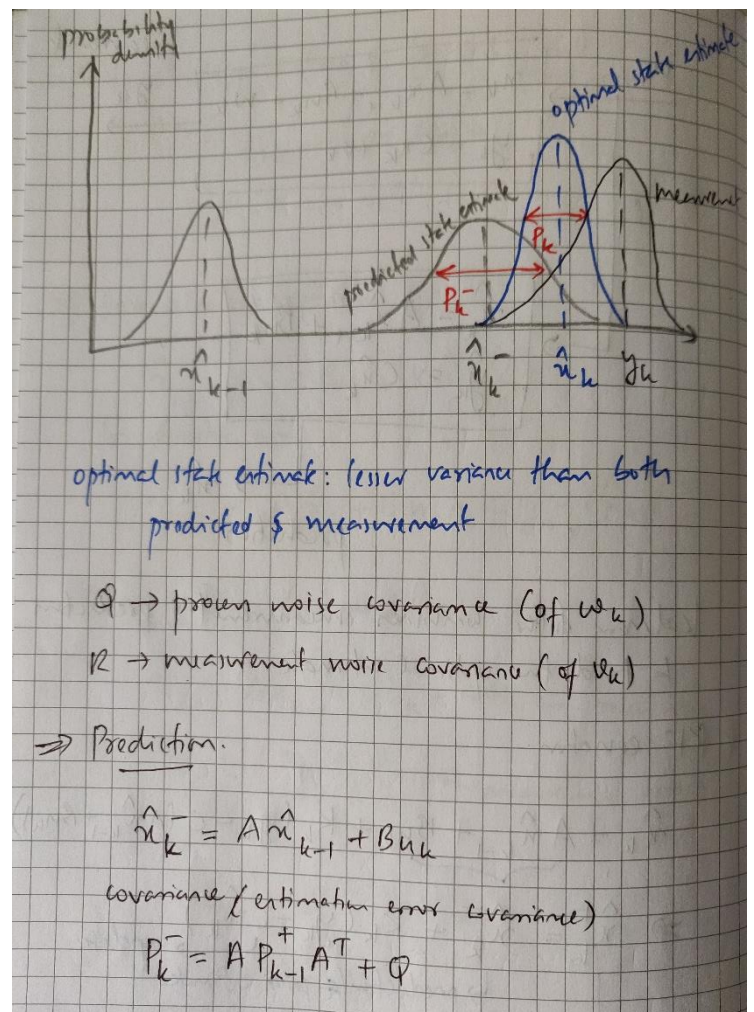 probability
density
optimal state estimate
measurement
predicted state estimate
Pₖ
Pₖ⁻
x̂ₖ₋₁
x̂ₖ⁻
x̂ₖ
yₖ
optimal state estimate: lesser variance than both
predicted & measurement
Q → process noise covariance (of wₖ)
R → measurement noise covariance (of vₖ)
⇒ Prediction.
x̂ₖ⁻ = A x̂ₖ₋₁ + Buₖ
covariance (estimation error covariance)
Pₖ⁻ = A P⁺ₖ₋₁ Aᵀ + Q